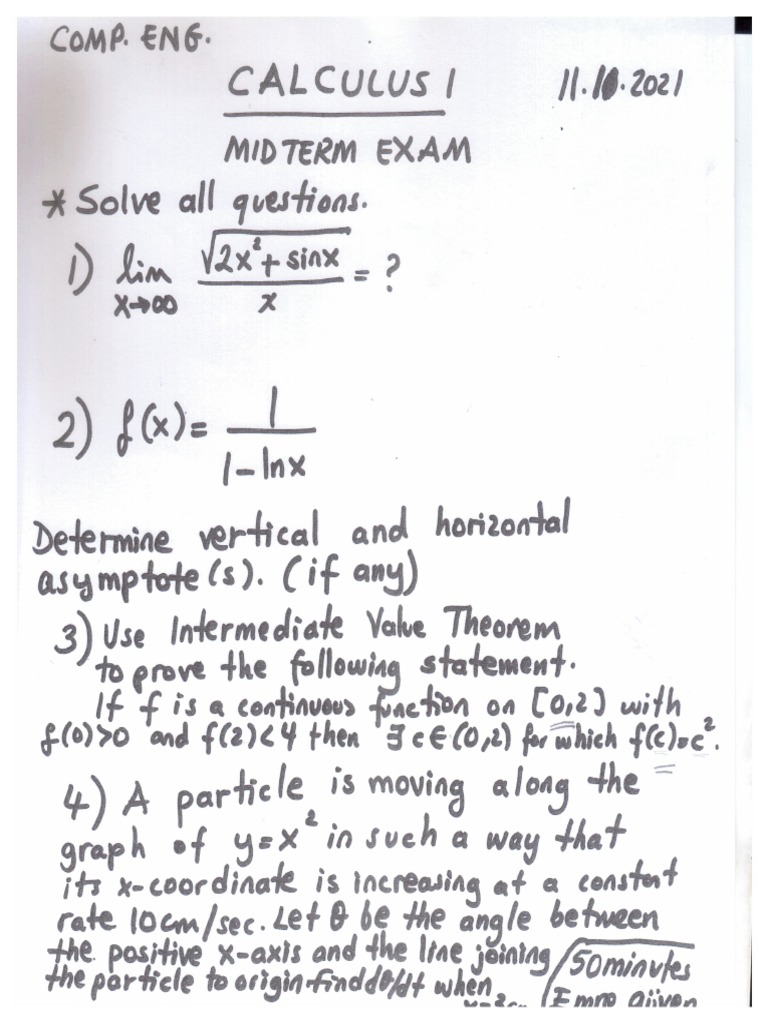 COMP. ENG.
CALCULUS 1
11.10.2021
MIDTERM EXAM
* Solve all questions.
1) lim x→∞ √(2x²+sinx) / x = ?
2) f(x) = 1 / (1-lnx)
Determine vertical and horizontal
asymptote(s). (if any)
3) Use Intermediate Value Theorem
to prove the following statement.
If f is a continuous function on [0,2] with
f(0)>0 and f(2)<4 then ∃ c∈(0,2) for which f(c)=c².
4) A particle is moving along the
graph of y=x² in such a way that
its x-coordinate is increasing at a constant
rate 10cm/sec. Let θ be the angle between
the positive x-axis and the line joining
the particle to origin. find dθ/dt when
50 minutes